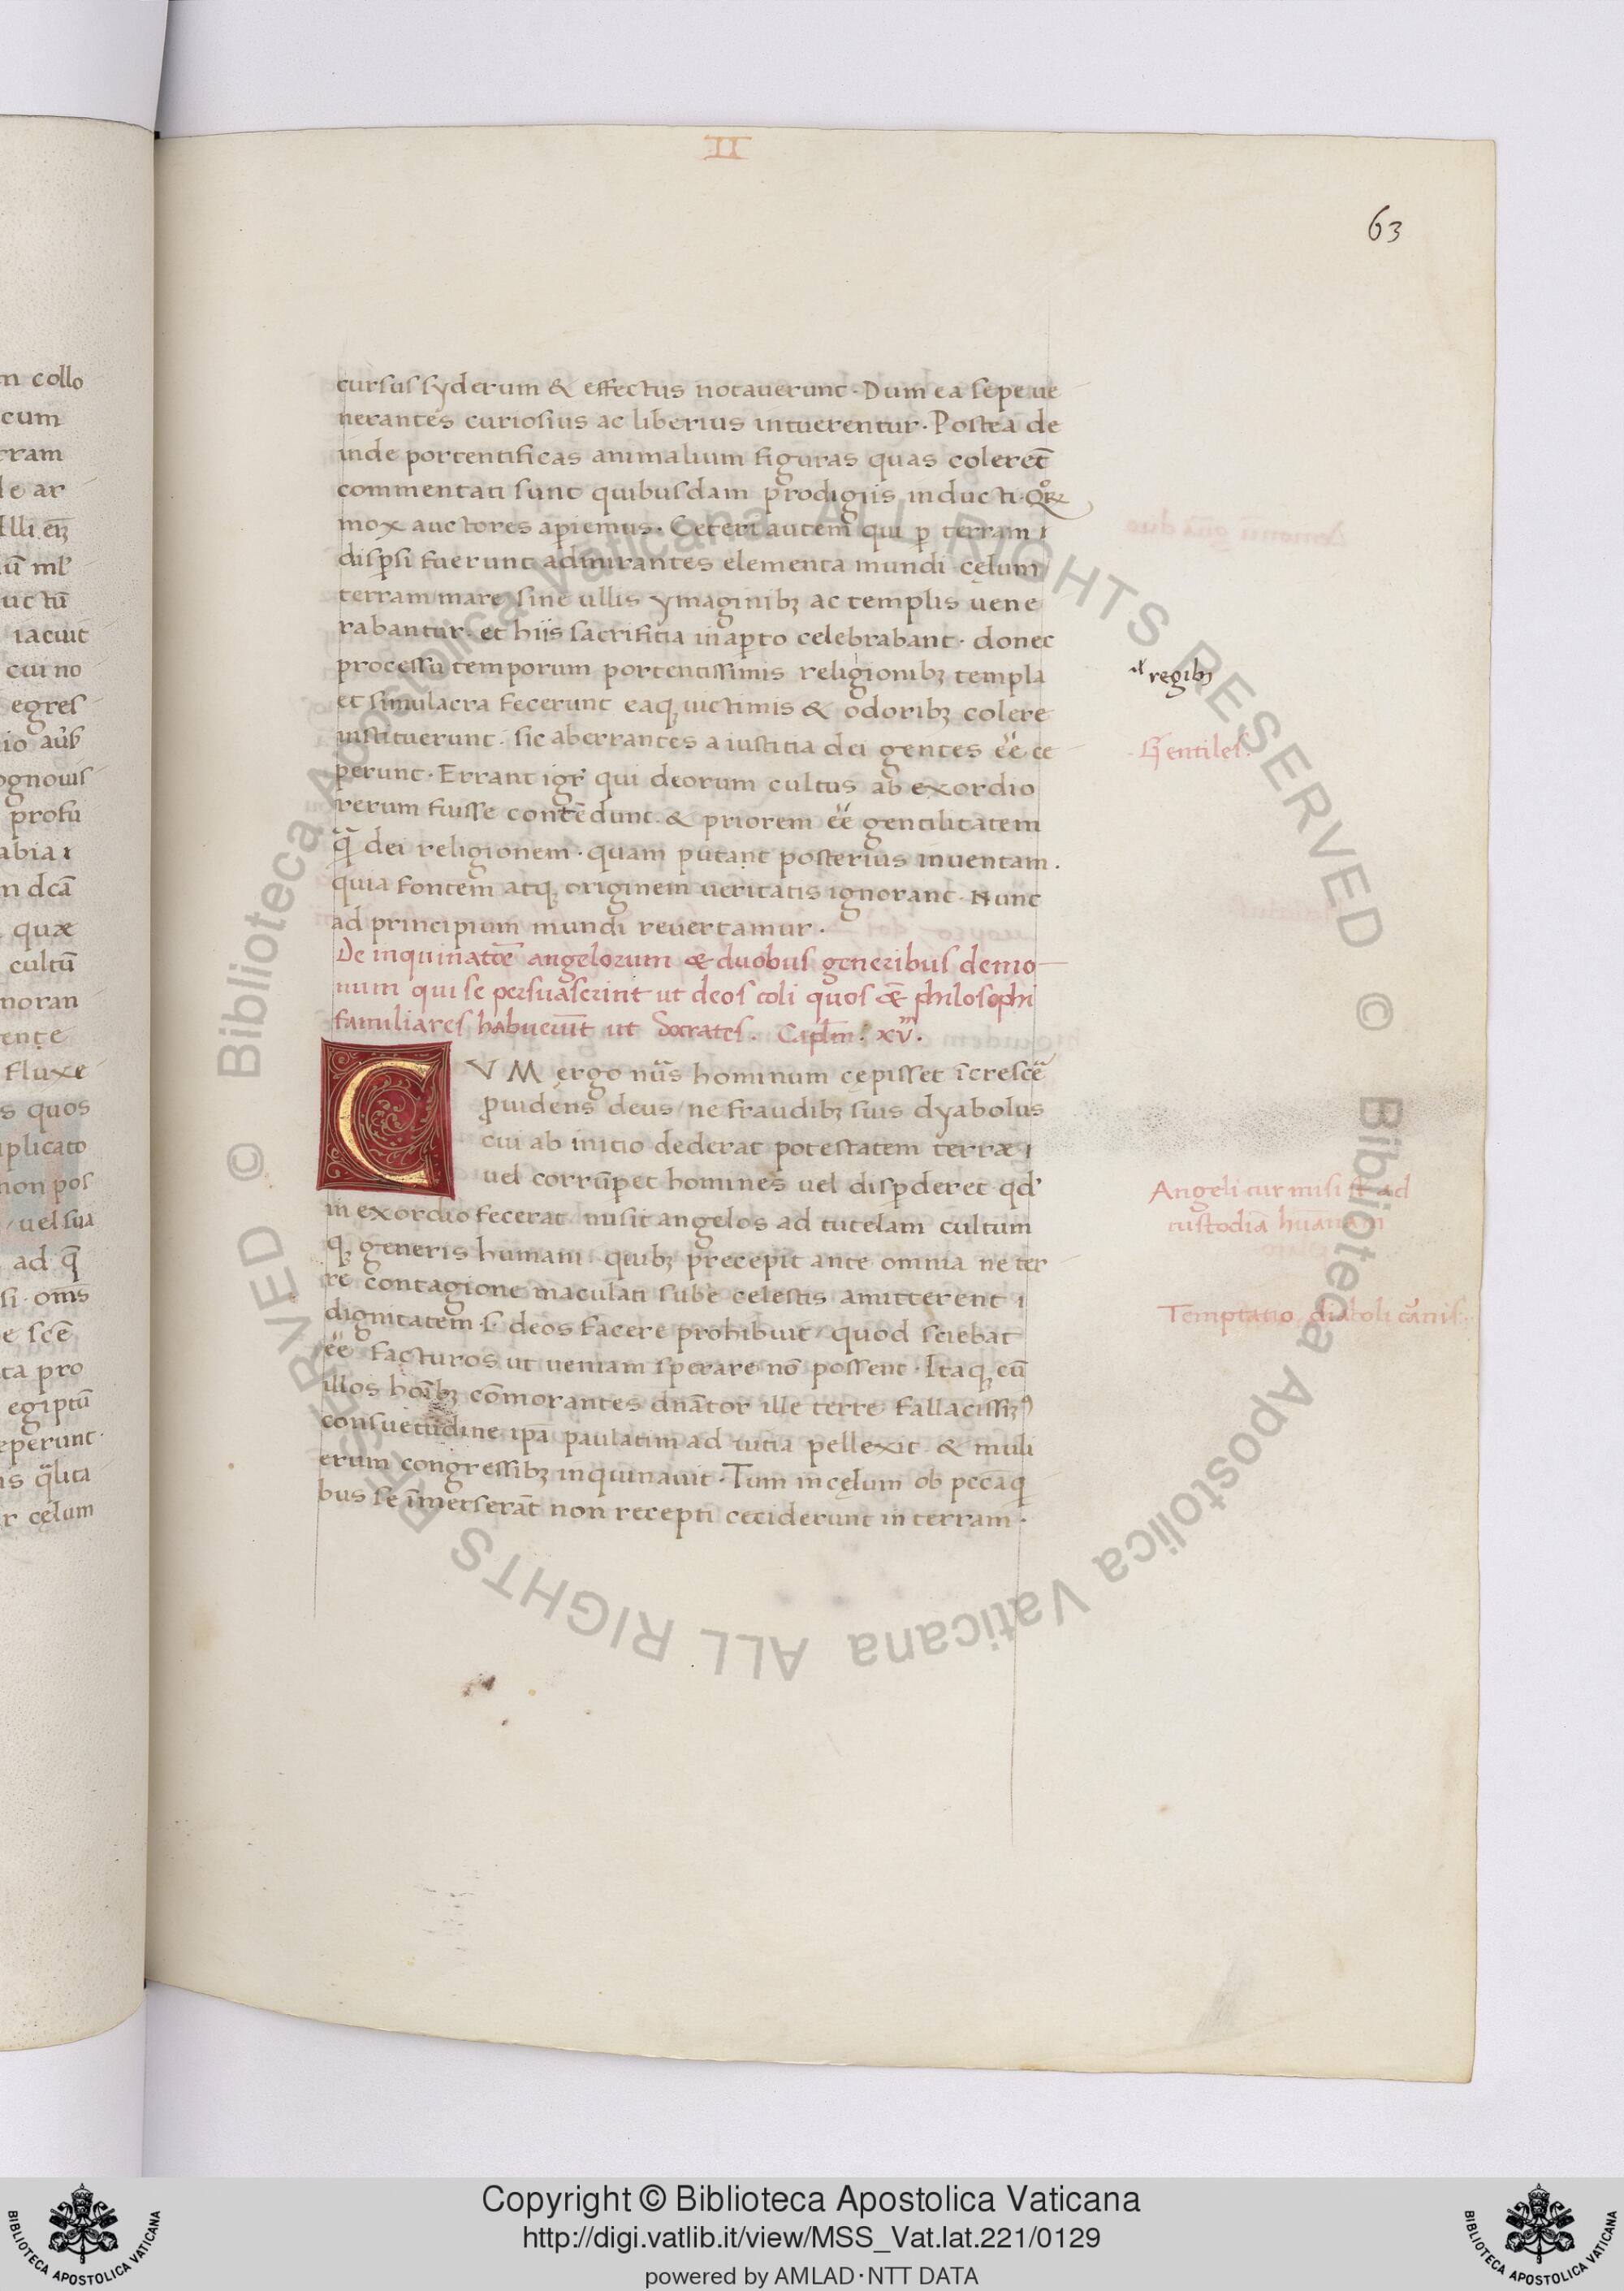 II
63
cursus syderum & effectus notauerunt · Dum ea sepe ue
nerantes curiosius ac liberius intuerentur · Postea de
inde portentificas animalium figuras quas coleret̄
commentati sunt quibusdam prodigiis inducti · Qꝝ
mox auctores aperiemus · Ceteri autem qui ꝑ terram
disꝑsi fuerunt admirantes elementa mundi cęlum
terram mare sine ullis ymaginibꝫ ac templis uene
rabantur · et hiis sacrificia in aꝑto celebrabant · donec
processu temporum portentissimis religionibꝫ templa
et simulacra fecerunt eaqꝫ uictimis & odoribꝫ colere
instituerunt · sic aberrantes a iustitia dei gentes ēē ce
perunt · Errant igr̄ qui deorum cultus ab exordio
rerum fuisse contēdunt · & priorem ēē gentilitatem
q̄ dei religionem · quam putant posterius inuentam ·
quia fontem atqꝫ originem ueritatis ignorant · Nunc
ad principium mundi reuertamur ·
De inquinatōe angelorum & duobus generibus demo
num qui se persuaserint ut deos coli quos &̄ philosophi
familiares habuerūt ut Socrates . Caplm̄ : xv.
CVM ergo nūs hominum cępisset īcresce
ꝓuidens deus / ne fraudibꝫ suis dyabolus
cui ab initio dederat potestatem terræ
uel corrūꝑet homines uel disꝑderet qd'
in exordio fecerat misit angelos ad tutelam cultum
qꝫ generis humani quibꝫ precepit ante omnia ne ter
re contagione maculati sub̄e celestis amitterent
dignitatem · s. deos facere prohibuit / quod sciebat
ēē facturos ut ueniam sperare nō possent · Itaqꝫ cū
illos hoībꝫ cōmorantes dnātor ille terre fallacissīꝫ
consuetudine ipā paulatim ad uitia pellexit & muli
erum congressibꝫ inquinauit · Tum in cęlum ob pccāq
bus se īmerserāt non recepti ceciderunt in terram ·
regibꝫ
Gentiles.
Angeli cur misi st ad
custodiā hūanam
Temptatio diaboli
n collo
cum
rram
le ar
iacuit
cui no
egres
ognouis
profu
abia
n dcā
quæ
cultū
noran
fluxe
s quos
plicato
non pos
uel sua
ad q̄
si · oms
e scē
ta pro
egiptū
eperunt
r cęlum
© Biblioteca Apostolica Vaticana ALL RIGHTS RESERVED © Biblioteca Apostolica Vaticana ALL RIGHTS RESERVED
Copyright © Biblioteca Apostolica Vaticana
http://digi.vatlib.it/view/MSS_Vat.lat.221/0129
powered by AMLAD·NTT DATA
BIBLIOTECA APOSTOLICA VATICANA
BIBLIOTECA APOSTOLICA VATICANA